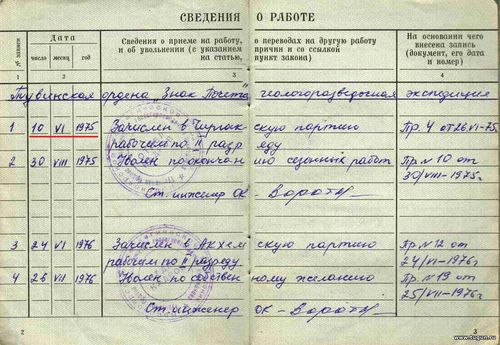 СВЕДЕНИЯ О РАБОТЕ
№ записи
Дата
число месяц год
Сведения о приеме на работу, о переводах на другую работу
и об увольнении (с указанием причин и со ссылкой
на статью, пункт закона)
На основании чего
внесена запись
(документ, его дата
и номер)
1 2 3 4
Тувинская ордена "Знак Почета" геологоразведочная экспедиция
1 10 VI 1975 Зачислен в скую партию Пр. 4 от 26 VI-75
рабочим по II разряду
2 30 VIII 1975 Уволен по окончанию сезонных работ Пр N 10 от
30/VIII-1975г.
Ст. инженер ОК -
3 24 VI 1976 Зачислен в Акхемскую партию Пр. N 12 от
рабочим по II разряду 24/VI-1976г
4 26 VII 1976 Уволен по собственному желанию Пр. N 19 от
25/VII-1976г.
Ст. инженер ОК -
2 3
www.tugun.ru